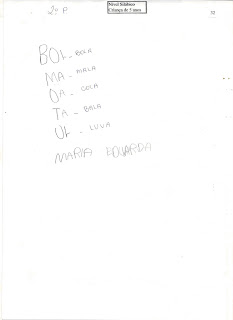 2º P
Nível Silábico
Criança de 5 anos
32
BOL - BOLA
MA - MALA
OA - COLA
TA - BALA
UL - LUVA
MARIA EDUARDA